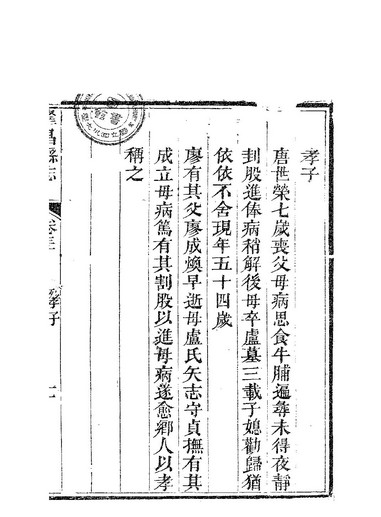 孝子
唐世榮七歲喪父母病思食牛脯遍尋未得夜靜
刲股進俸病稍解後母卒盧墓三載子媳勸歸猶
依依不舍現年五十四歲
廖有其父廖成煥早逝母盧氏矢志守貞撫有其
成立母病篤有其割股以進母病遂愈鄉人以孝
稱之
昌縣志
卷三
孝子